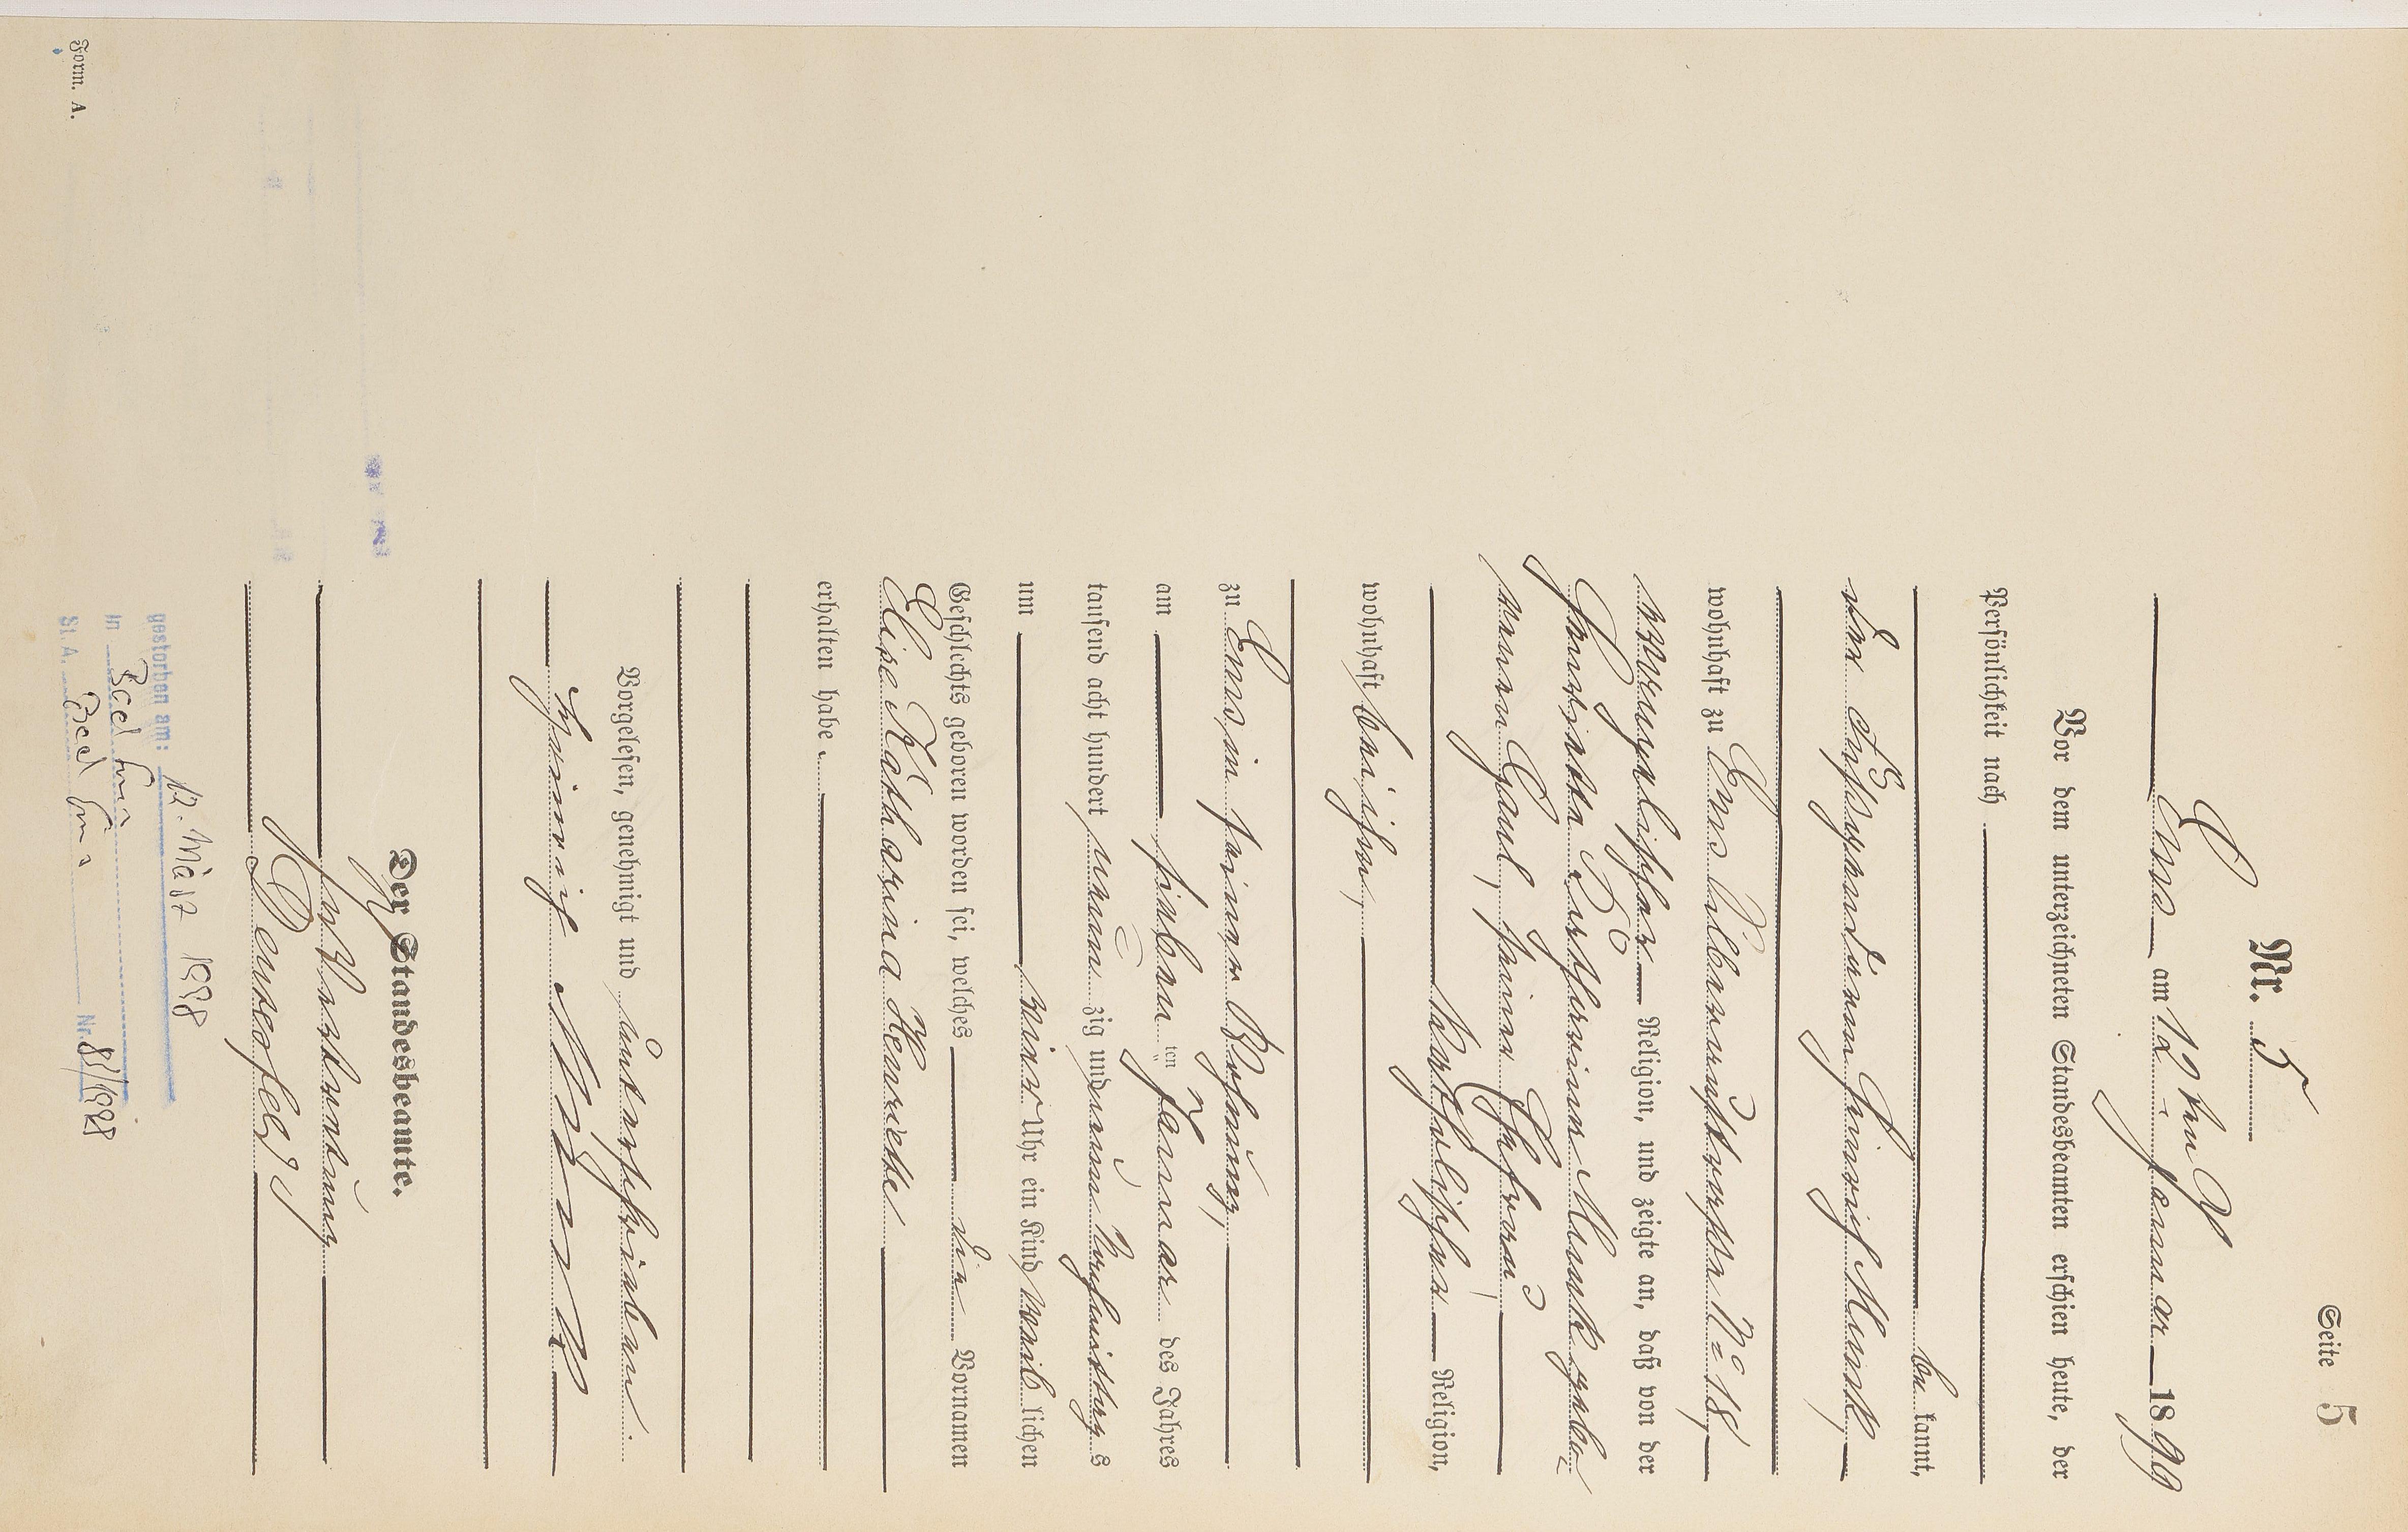 Seite 5
Nr. 5
Ems am 12ten Januar 1899
Vor dem unterzeichneten Standesbeamten erschien heute, der
Persönlichkeit nach
be kannt,
der Heinrich Munk,
wohnhaft zu Ems Silberaustraße No 18,
evangelischer Religion, und zeigte an, daß von der
Henriette Munk gebo-
renen Gaul, seiner Ehefrau
katholischer Religion,
wohnhaft bei ihm,
zu Ems in seiner Wohnung,
am sieben ten Januar des Jahres
tausend acht hundert neun zig und neun Vormittags
um vier Uhr ein Kind weib lichen
Geschlechts geboren worden sei, welches die Vornamen
Elise Katharina Henriette
erhalten habe.
Vorgelesen, genehmigt und unterschrieben.
Heinrich Munk
Der Standesbeamte.
In Vertretung
gestorben am: 12. März 1998
in Bad Ems
St. A. Bad Ems Nr. 81/1998
Form. A.